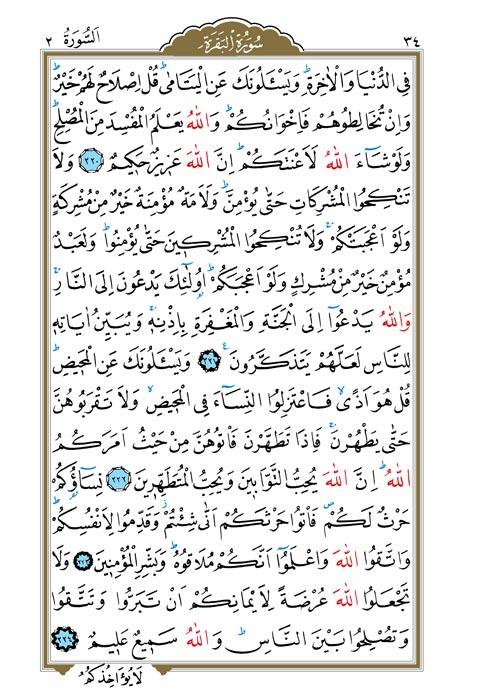 ٣٤ سُورَةُ الْبَقَرَةِ اَلسُّورَةُ ٢
فِى الدُّنْيَا وَالْاٰخِرَةِۜ وَيَسْـَٔلُونَكَ عَنِ الْيَتَامٰىۜ قُلْ اِصْلَاحٌ لَهُمْ خَيْرٌۜ
وَاِنْ تُخَالِطُوهُمْ فَاِخْوَانُكُمْۜ وَاللّٰهُ يَعْلَمُ الْمُفْسِدَ مِنَ الْمُصْلِحِۜ
وَلَوْ شَٓاءَ اللّٰهُ لَاَعْنَتَكُمْۜ اِنَّ اللّٰهَ عَزِيزٌ حَكِيمٌ ﴿٢٢٠﴾ وَلَا
تَنْكِحُوا الْمُشْرِكَاتِ حَتّٰى يُؤْمِنَّۜ وَلَاَمَةٌ مُؤْمِنَةٌ خَيْرٌ مِنْ مُشْرِكَةٍ
وَلَوْ اَعْجَبَتْكُمْۚ وَلَا تُنْكِحُوا الْمُشْرِكِينَ حَتّٰى يُؤْمِنُواۜ وَلَعَبْدٌ
مُؤْمِنٌ خَيْرٌ مِنْ مُشْرِكٍ وَلَوْ اَعْجَبَكُمْۜ اُو۬لٰٓئِكَ يَدْعُونَ اِلَى النَّارِۚ
وَاللّٰهُ يَدْعُٓوا اِلَى الْجَنَّةِ وَالْمَغْفِرَةِ بِاِذْنِهِۚ وَيُبَيِّنُ اٰيَاتِهِ
لِلنَّاسِ لَعَلَّهُمْ يَتَذَكَّرُونَ۟ ﴿٢٢١﴾ وَيَسْـَٔلُونَكَ عَنِ الْمَحِيضِۜ
قُلْ هُوَ اَذًىۙ فَاعْتَزِلُوا النِّسَٓاءَ فِى الْمَحِيضِۙ وَلَا تَقْرَبُوهُنَّ
حَتّٰى يَطْهُرْنَۚ فَاِذَا تَطَهَّرْنَ فَأْتُوهُنَّ مِنْ حَيْثُ اَمَرَكُمُ
اللّٰهُۜ اِنَّ اللّٰهَ يُحِبُّ التَّوَّابِينَ وَيُحِبُّ الْمُتَطَهِّرِينَ ﴿٢٢٢﴾ نِسَٓاؤُ۬كُمْ
حَرْثٌ لَكُمْۖ فَأْتُوا حَرْثَكُمْ اَنّٰى شِئْتُمْۘ وَقَدِّمُوا لِاَنْفُسِكُمْۜ
وَاتَّقُوا اللّٰهَ وَاعْلَمُٓوا اَنَّكُمْ مُلَاقُوهُۜ وَبَشِّرِ الْمُؤْمِنِينَ ﴿٢٢٣﴾ وَلَا
تَجْعَلُوا اللّٰهَ عُرْضَةً لِاَيْمَانِكُمْ اَنْ تَبَرُّوا وَتَتَّقُوا
وَتُصْلِحُوا بَيْنَ النَّاسِۜ وَاللّٰهُ سَمِيعٌ عَلِيمٌ ﴿٢٢٤﴾
لَا يُؤَاخِذُكُمُ